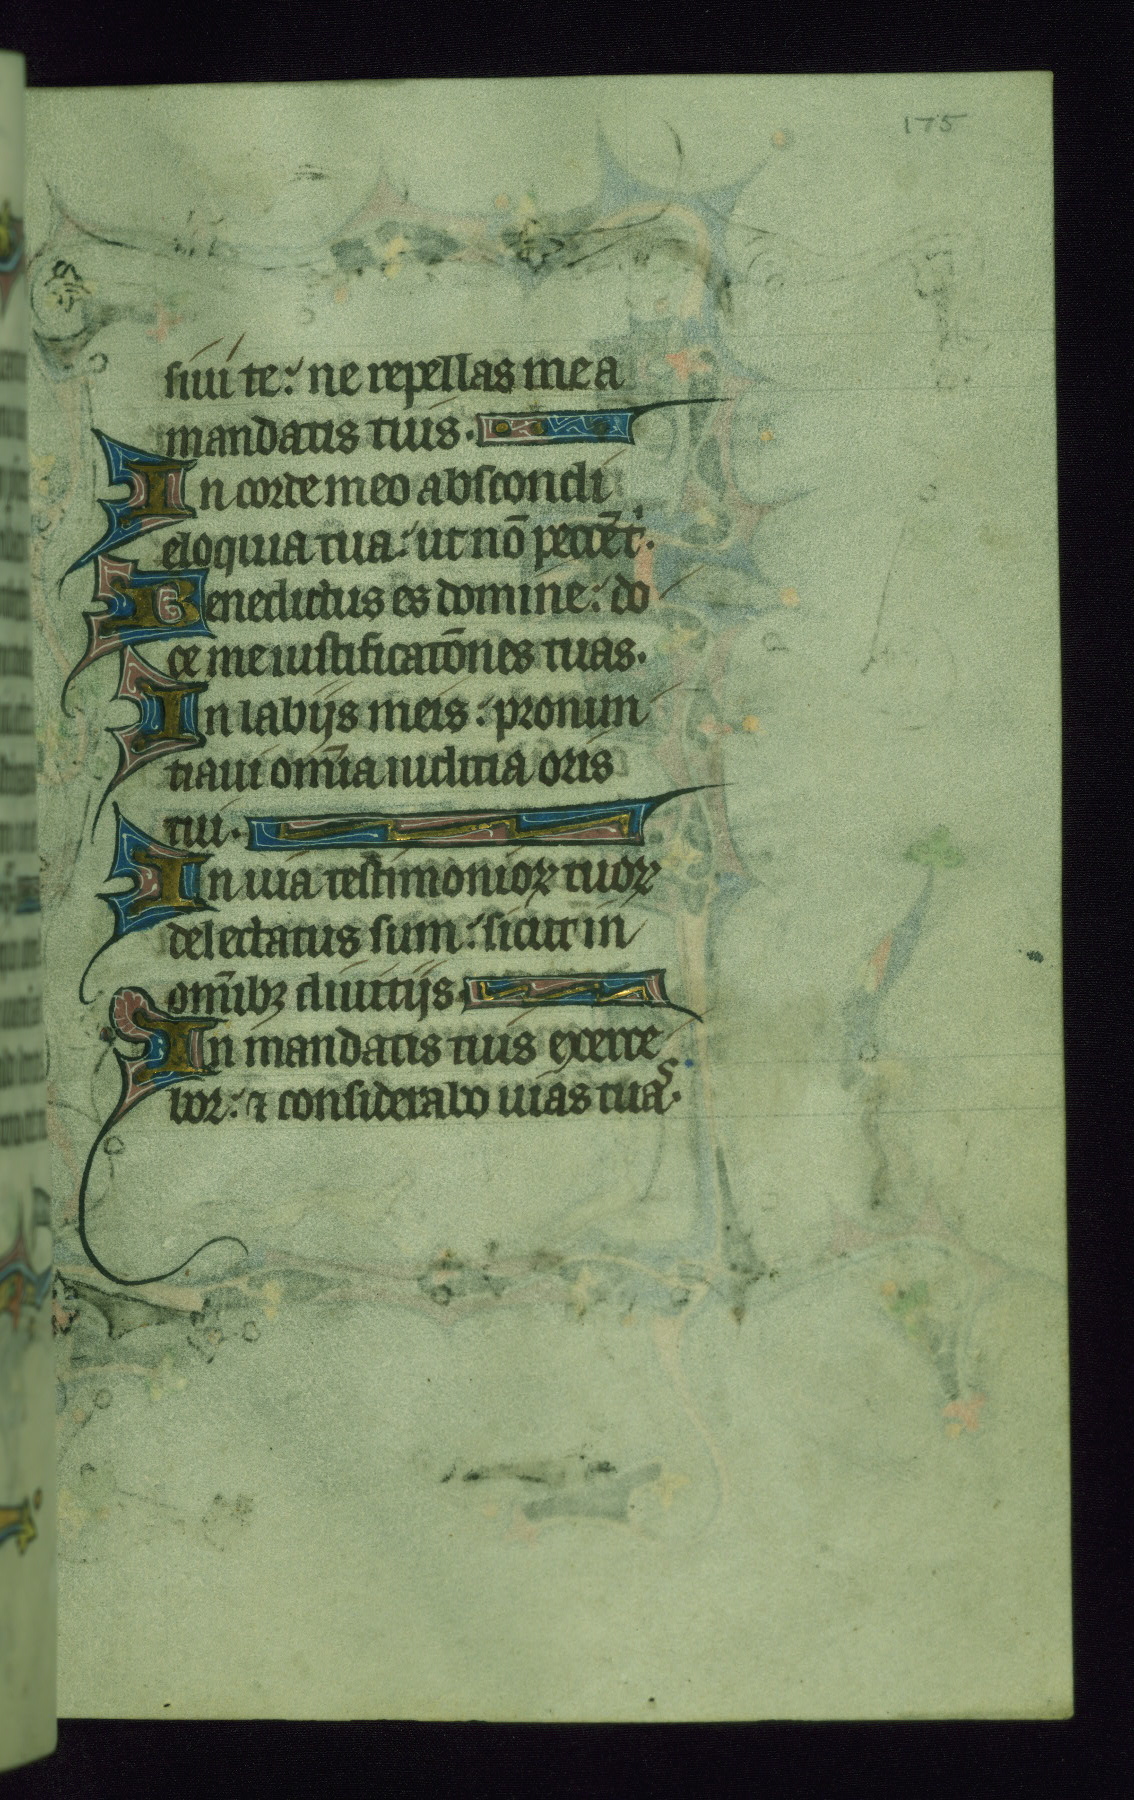 175
siui te: ne repellas me a
mandatis tuis.
In corde meo abscondi
eloquia tua: ut nō peccēt̉.
Benedictus es domine: do
ce me iustificatōnes tuas.
In labijs meis: pronun
tiaui om̄ia iudicia oris
tui.
In uia testimonioꝝ tuoꝝ
delectatus sum: sicut in
om̄ibꝫ diuitijs.
In mandatis tuis exerce
bor: ⁊ considerabo uias tuas.